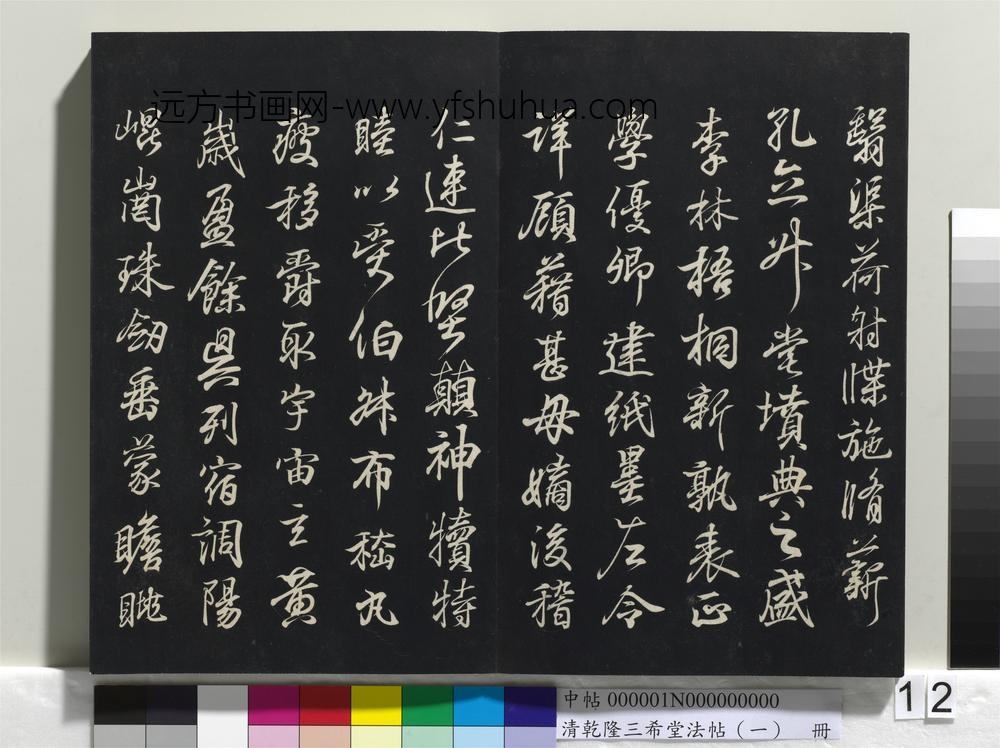 远方书画网-www.yfshuhua.com
翳渠荷射牒施脩薪
孔立升堂墳典之盛
李林梧桐新孰表正
學優卿建紙墨左令
詳顧藉甚毋嫡後稽
仁連比堅顛神犢特
睦以受伯叔布嵇丸
疲移爵取宇宙主黄
歲盈餘具列宿調陽
崐崗珠釰垂蒙瞻眺
中帖 000001N000000000
清乾隆三希堂法帖（一） 冊
12